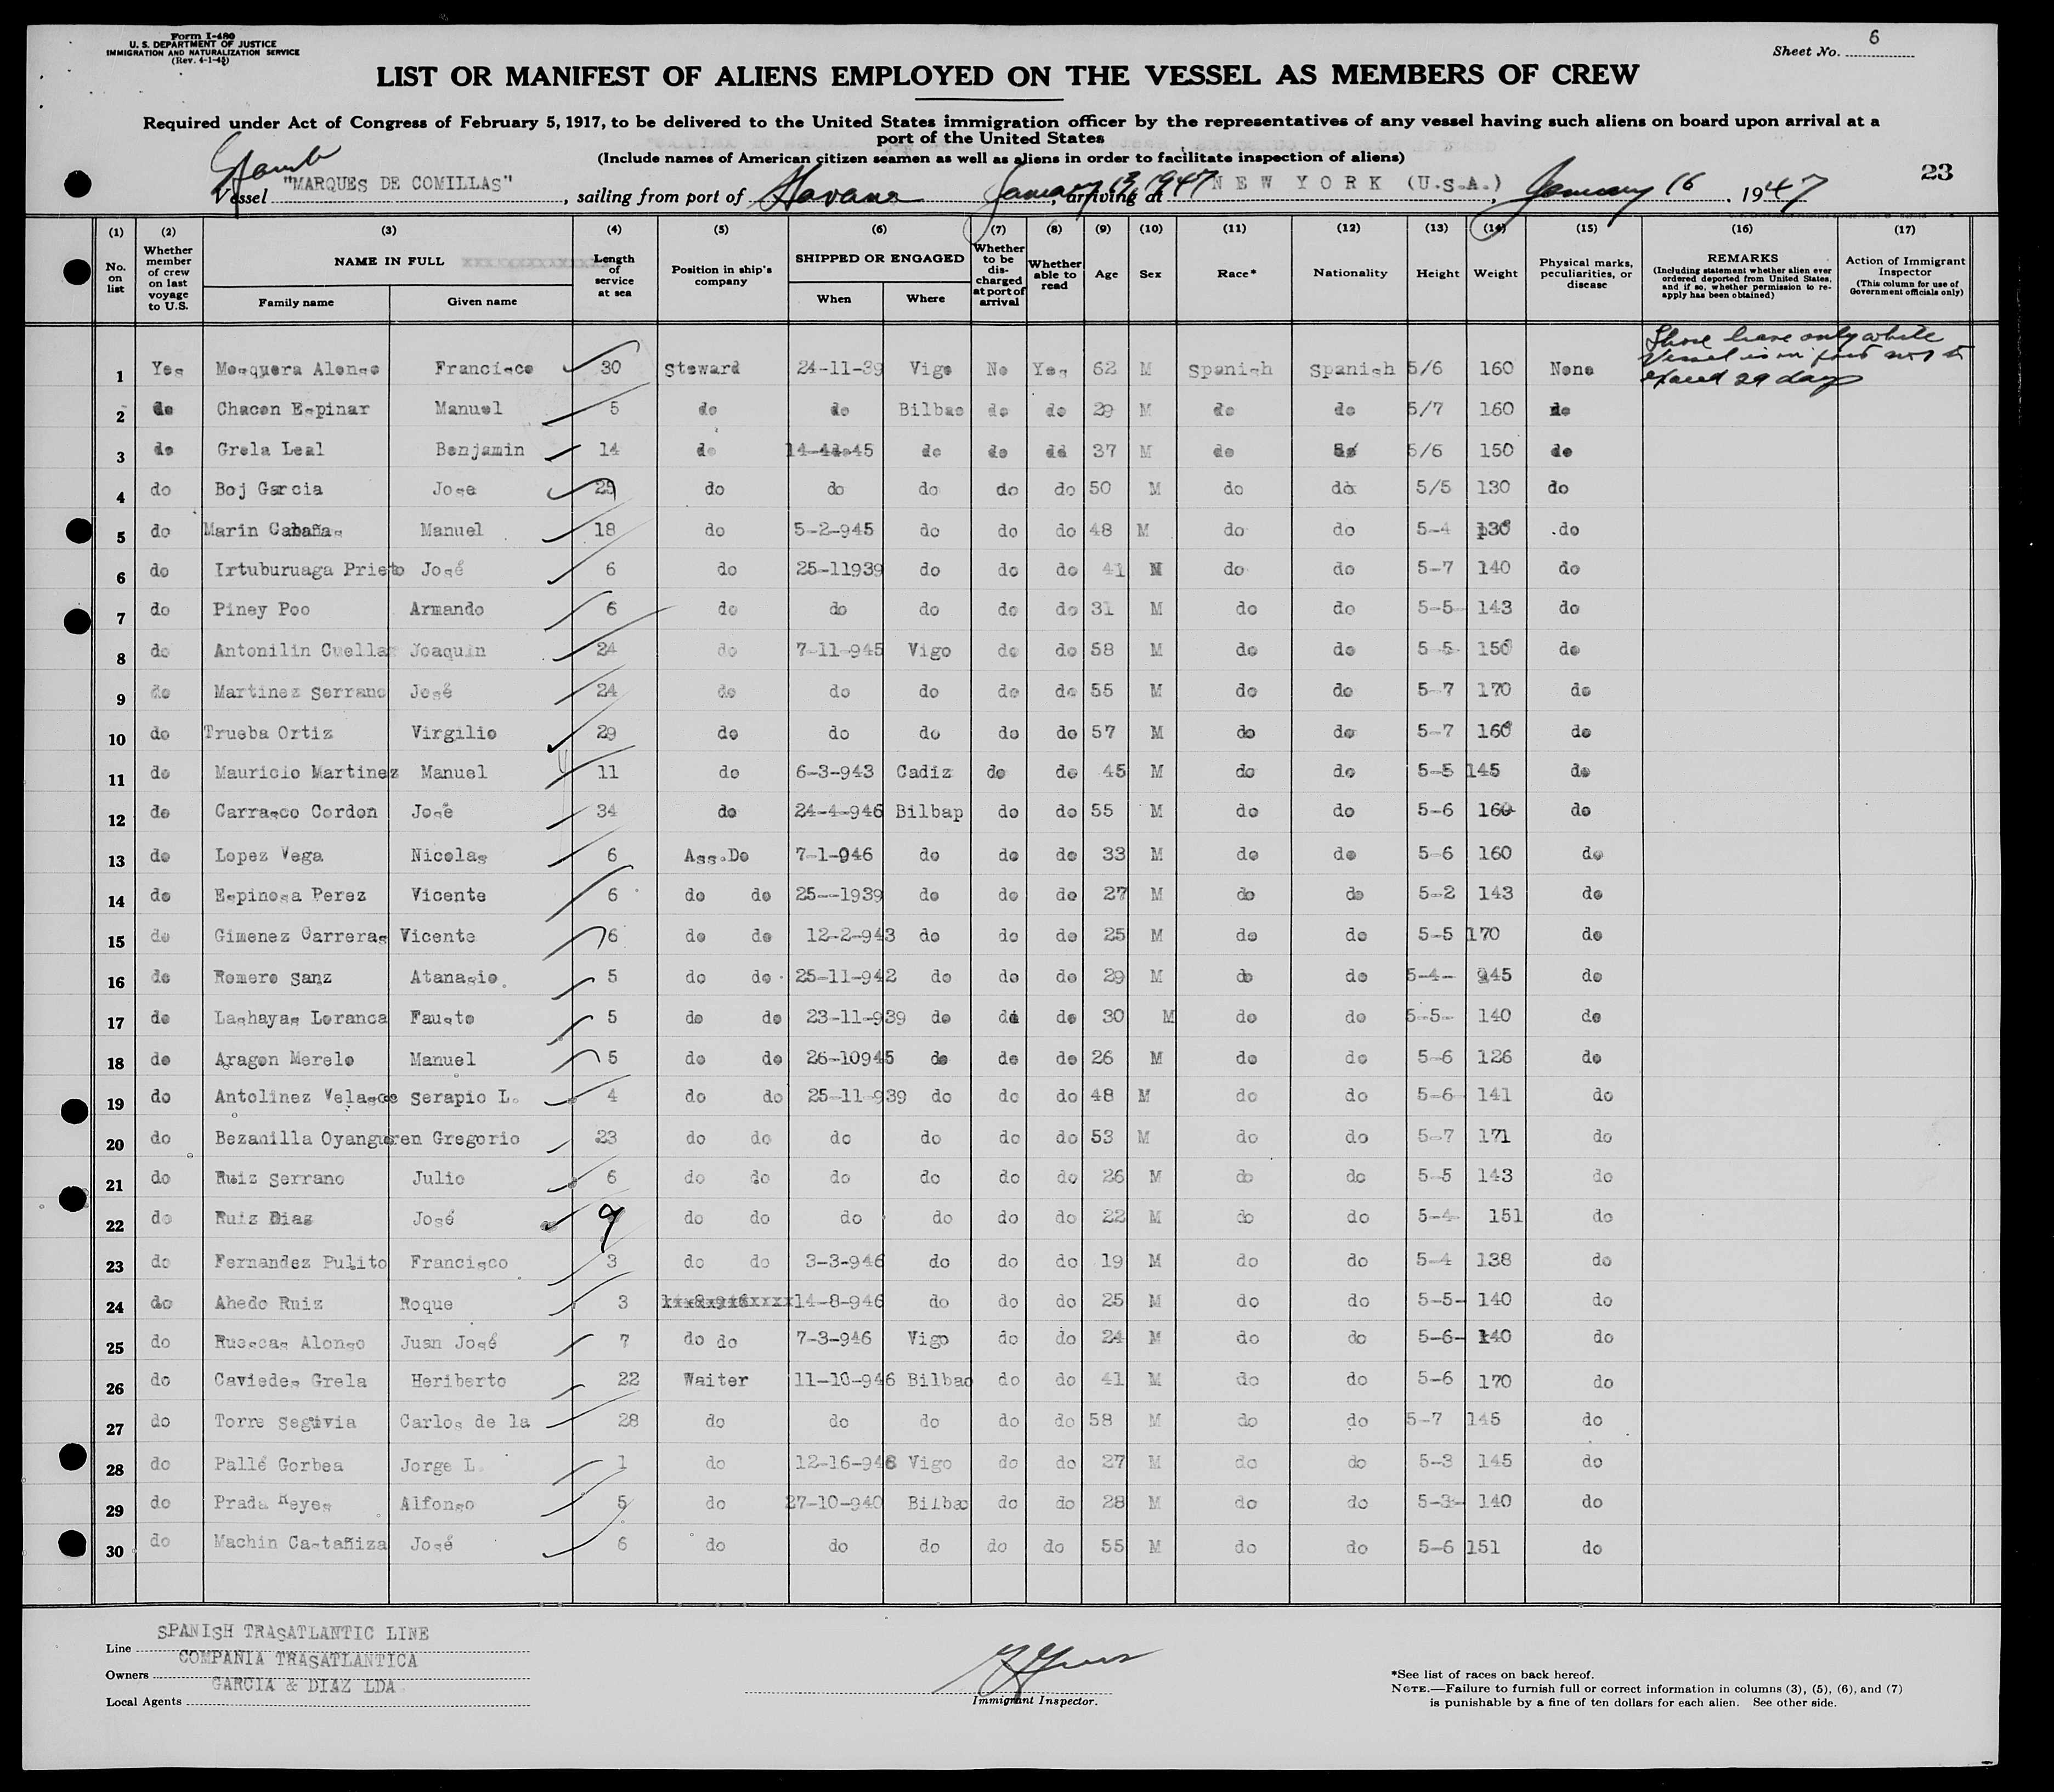 Form I-480
U. S. DEPARTMENT OF JUSTICE
IMMIGRATION AND NATURALIZATION SERVICE
(Rev. 4-1-45)
Sheet No. 6
LIST OR MANIFEST OF ALIENS EMPLOYED ON THE VESSEL AS MEMBERS OF CREW
Required under Act of Congress of February 5, 1917, to be delivered to the United States immigration officer by the representatives of any vessel having such aliens on board upon arrival at a
port of the United States
(Include names of American citizen seamen as well as aliens in order to facilitate inspection of aliens)
23
Vessel "MARQUES DE COMILLAS", sailing from port of Havana January 13, 1947, arriving at NEW YORK (U.S.A.), January 16, 1947
(1) (2) (3) (4) (5) (6) (7) (8) (9) (10) (11) (12) (13) (14) (15) (16) (17)
No. on list
Whether member of crew on last voyage to U.S.
NAME IN FULL
Family name
Given name
Length of service at sea
Position in ship's company
SHIPPED OR ENGAGED
When
Where
Whether to be discharged at port of arrival
Whether able to read
Age
Sex
Race*
Nationality
Height
Weight
Physical marks, peculiarities, or disease
REMARKS
(Including statement whether alien ever ordered deported from United States, and if so, whether permission to re-apply has been obtained)
Action of Immigrant Inspector
(This column for use of Government officials only)
Shore leave only while
vessel is in port not to
exceed 29 days
1 Yes Mosquera Alonso Francisco 30 Steward 24-11-39 Vigo No Yes 62 M Spanish Spanish 5/6 160 None
2 do Chacon Espinar Manuel 5 do do Bilbao do do 29 M do do 5/7 160 do
3 do Grela Leal Benjamin 14 do do do do 37 M do 5/6 150 do
4 do Boj Garcia Jose 25 do do do do do 50 M do do 5/5 130 do
5 do Marin Cabañas Manuel 18 do 5-2-945 do do do 48 M do do 5-4 130 do
6 do Irtuburuaga Prieto José 6 do 25-11939 do do do 41 M do do 5-7 140 do
7 do Piney Poo Armando 6 do do do do do 31 M do do 5-5 143 do
8 do Antonilin Cuellar Joaquin 24 do 7-11-945 Vigo do do 58 M do do 5-5 150 do
9 do Martinez Serrano José 24 do do do do do 55 M do do 5-7 170 do
10 do Trueba Ortiz Virgilio 29 do do do do do 57 M do do 5-7 160 do
11 do Mauricio Martinez Manuel 11 do 6-3-943 Cadiz do do 45 M do do 5-5 145 do
12 do Carrasco Cordon José 34 do 24-4-946 Bilbap do do 55 M do do 5-6 160 do
13 do Lopez Vega Nicolas 6 Ass.Do 7-1-946 do do do 33 M do do 5-6 160 do
14 do Espinosa Perez Vicente 6 do do 25--1939 do do do 27 M do do 5-2 143 do
15 do Gimenez Carreras Vicente 6 do do 12-2-943 do do do 25 M do do 5-5 170 do
16 do Romero Sanz Atanasio. 5 do do 25-11-942 do do do 29 M do do 5-4- 945 do
17 do Lashayas Loranca Fausto 5 do do 23-11-939 do do do 30 M do do 5-5- 140 do
18 do Aragon Merelo Manuel 5 do do 26-10945 do do do 26 M do do 5-6 126 do
19 do Antolinez Velasco Serapio L. 4 do do 25-11-939 do do do 48 M do do 5-6 141 do
20 do Bezanilla Oyanguren Gregorio 23 do do do do do do 53 M do do 5-7 171 do
21 do Ruiz Serrano Julio 6 do do do do do do 26 M do do 5-5 143 do
22 do Ruiz Diaz José 9 do do do do do do 22 M do do 5-4 151 do
23 do Fernandez Pulito Francisco 3 do do 3-3-946 do do do 19 M do do 5-4 138 do
24 do Ahedo Ruiz Roque 3 14-8-946 do do do 25 M do do 5-5- 140 do
25 do Ruescas Alonso Juan José 7 do do 7-3-946 Vigo do do 24 M do do 5-6- 140 do
26 do Caviedes Grela Heriberto 22 Waiter 11-10-946 Bilbao do do 41 M do do 5-6 170 do
27 do Torre Segivia Carlos de la 28 do do do do do 58 M do do 5-7 145 do
28 do Pallé Gorbea Jorge L. 1 do 12-16-946 Vigo do do 27 M do do 5-3 145 do
29 do Prada Reyes Alfonso 5 do 27-10-940 Bilbao do do 28 M do do 5-3- 140 do
30 do Machin Castañiza José 6 do do do do do 55 M do do 5-6 151 do
Line SPANISH TRASATLANTIC LINE
Owners COMPANIA TRASATLANTICA
Local Agents GARCIA & DIAZ LDA
Immigrant Inspector.
*See list of races on back hereof.
NOTE.—Failure to furnish full or correct information in columns (3), (5), (6), and (7)
is punishable by a fine of ten dollars for each alien. See other side.